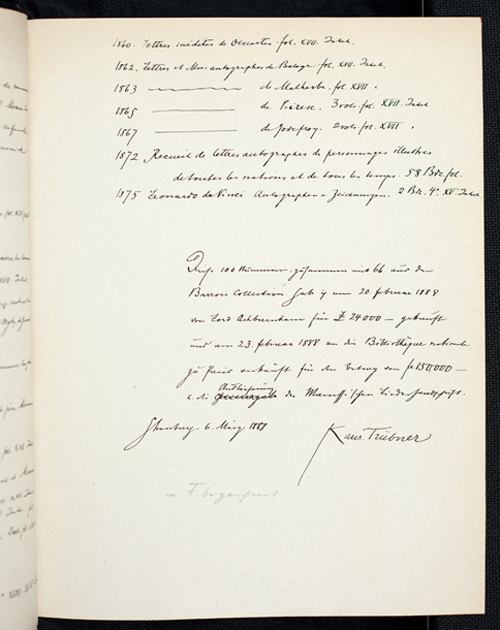 1860. Lettres inédites de Descartes. fol. XVII. Jahrh.
1862. Lettres et Mss. autographes de Beloge fol. XVII. Jahrh.
1863 de Malherbe. fol. XVII "
1865 de Peiresc. 3 vols. fol. XVII. Jahrh
1867 de Godefroy. 2 vols. fol. XVII "
1872 Recueil de lettres autographes de personnages illustres
de toutes les nations et de tous les temps. 58 Bde. fol.
1875 Leonardo da Vinci Autographen u. Zeichnungen. 2 Bde. 4° XV. Jahrh.
Diese 100 Nummern zusammen mit 66 aus der
Barrois Collection hab ich am 20 Februar 1888
von Lord Ashburnham für £ 24000 — gekauft
und am 23. Februar 1888 an die Bibliothèque nationale
zu Paris verkauft für den Betrag von fr 150,000 —
u. die Auslieferung der Manessischen Liederhandschrift.
Strassburg, 6. März 1888
Karl Trübner
m. F. bezeichnet